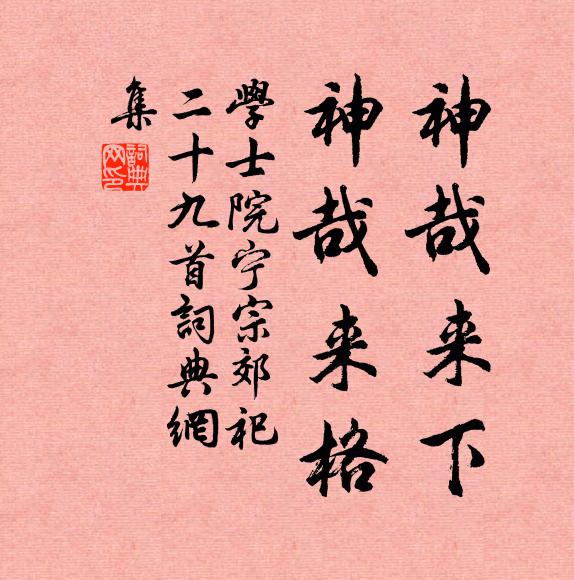 神哉来下
神哉来格
學士院宁宗郊祀
二十九首詞典網
集
詞典网印